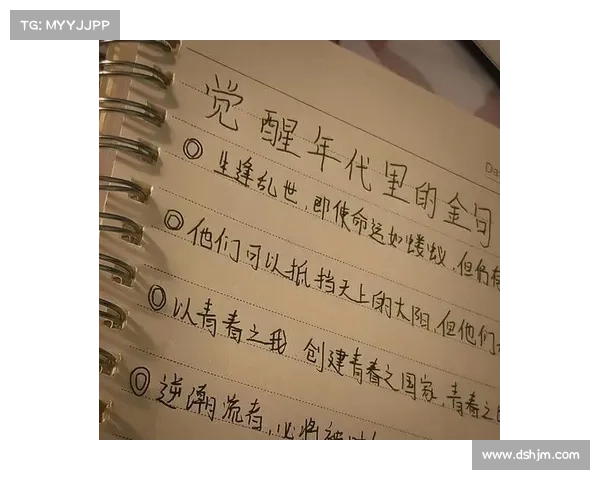 TG: MYYJJPP
觉醒年代里的金句
◎ 生逢乱世，即使命运如蝼蚁，但仍有
◎ 他们可以抵挡天上的太阳，但他们
◎ 以青春之我 创建青春之国家，青春之
◎ 逆潮流者，必将被
www.dshjm.com